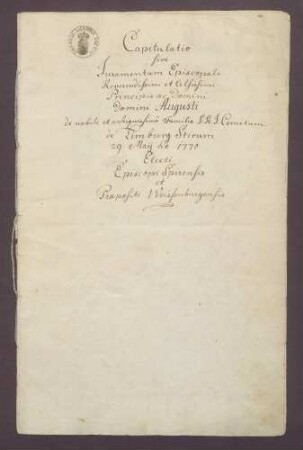 Capitulatio
sive
Juramentum Episcopale
Reverendissimi et Celsissimi
Principis ac Domini
Domini Augusti
de nobili et antiquissima Familia S. R. I. Comitum
de Limburg Stirum
29 Maij 1770
Electi
Episcopi Spirensis
et
Praepositi Weissenburgensis